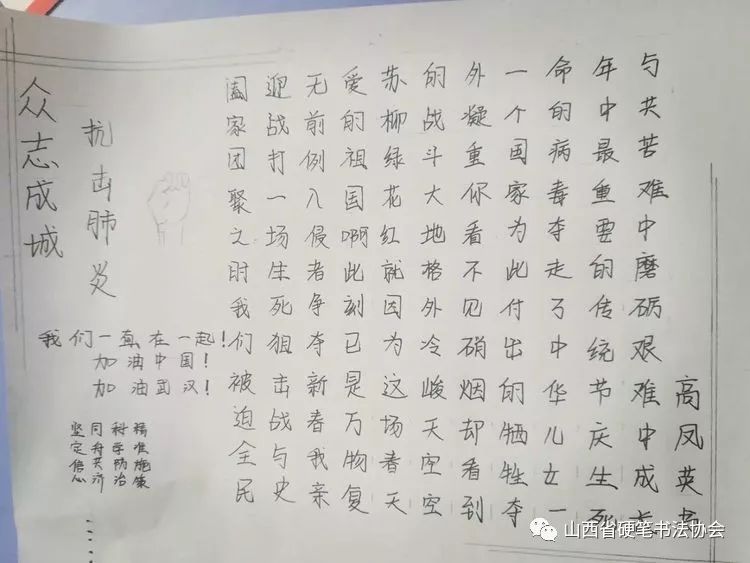 众志成城
抗击肺炎
我们一直在一起！
加油中国！
加油武汉！
坚定信心
同舟共济
科学防治
精准施策
......
阖家团聚之时我们被迫全民
迎战打一场生死狙击战与史
无前例入侵者争夺新春我亲
爱的祖国啊此刻已是万物复
苏柳绿花红就因为这场春天
的战斗大地格外冷峻天空空
外凝重你看不见硝烟却看到
一个国家为此付出的牺牲夺
命的病毒夺走了中华儿女一
年中最重要的传统节庆生死
与共苦难中磨砺艰难中成长
高凤英书
山西省硬笔书法协会